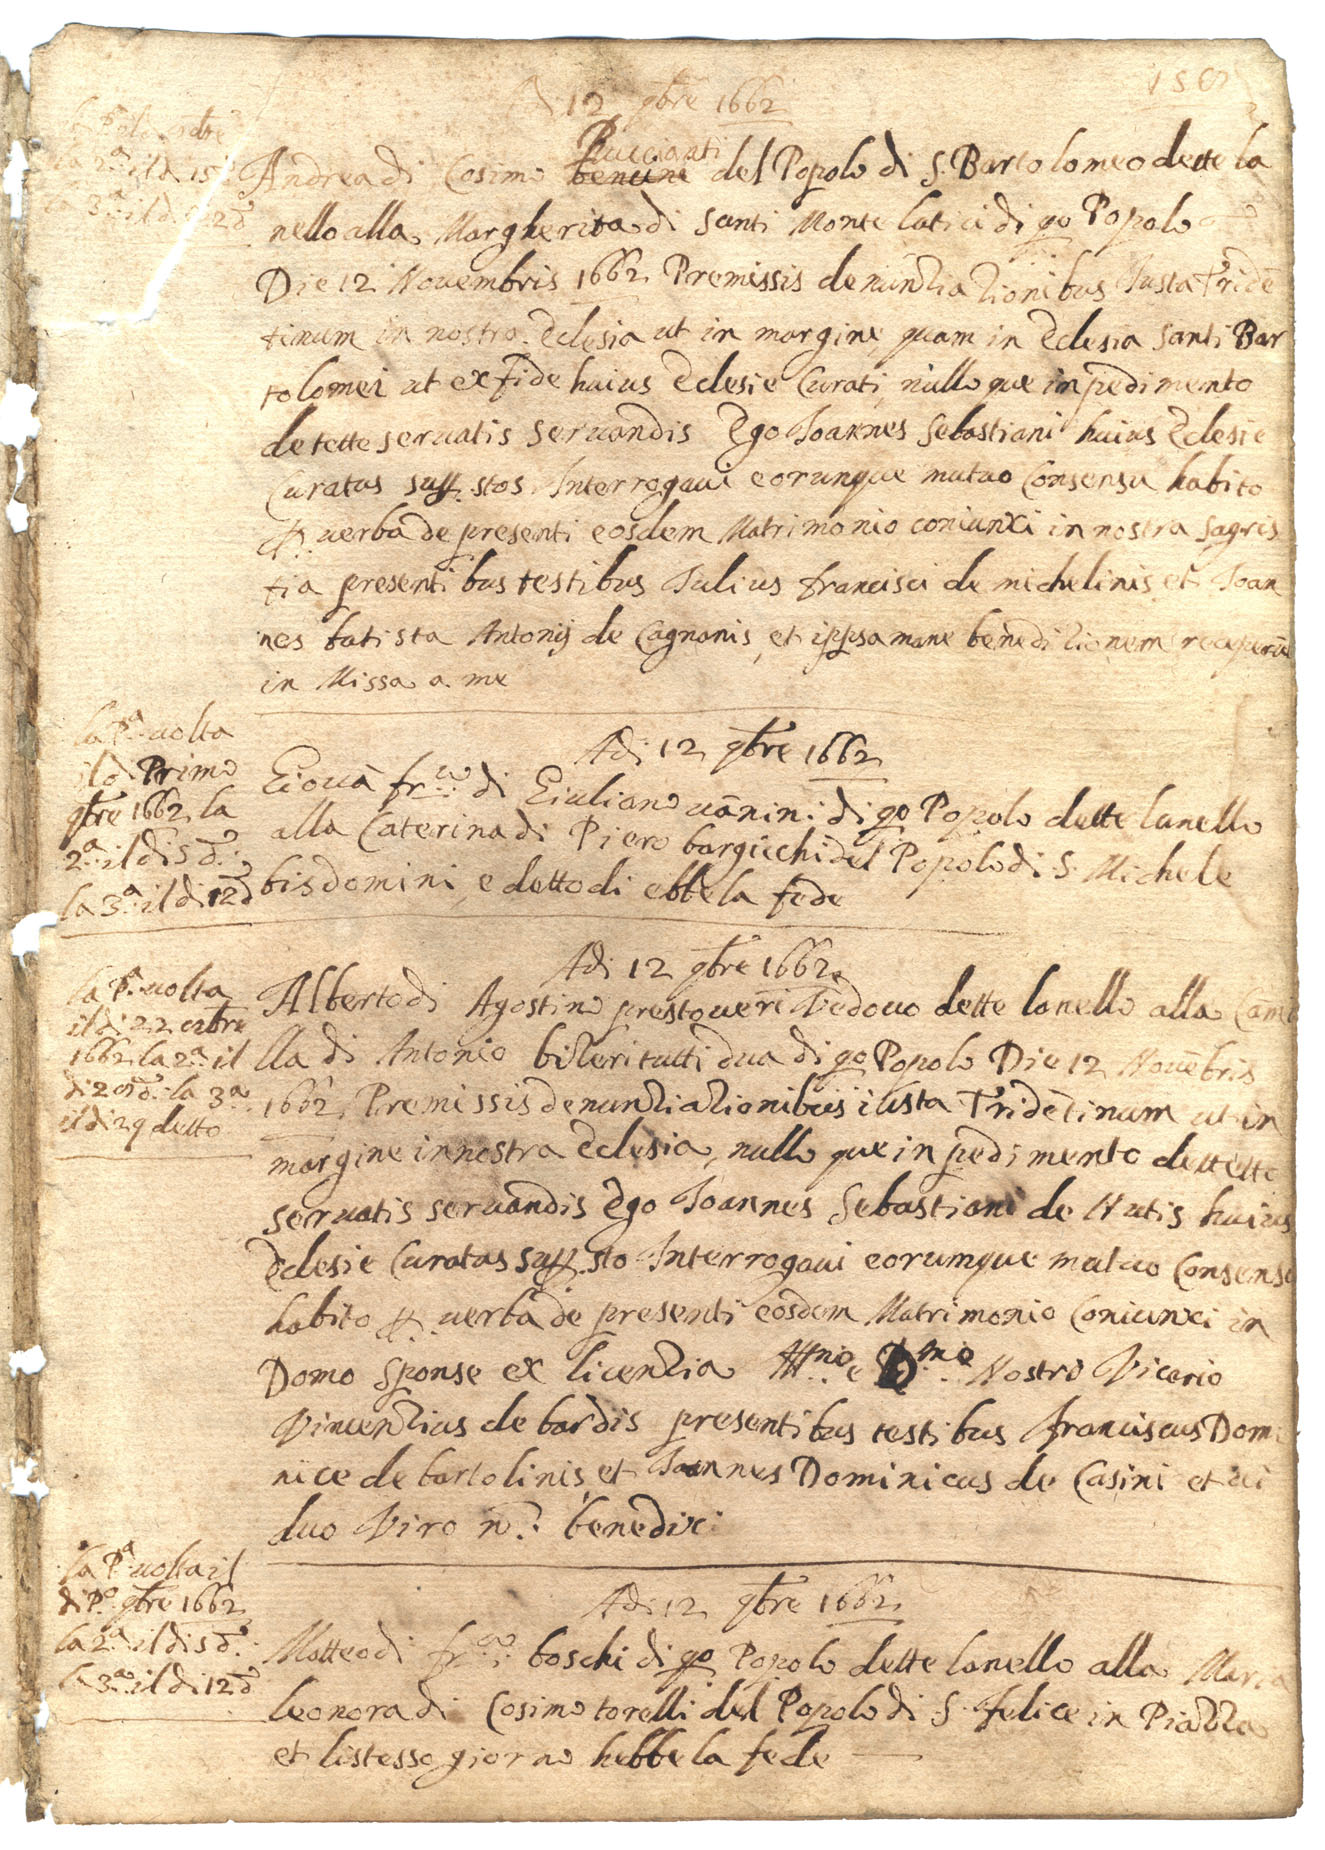 12 9bre 1662
la 2ª il dì 15
la 3ª il dì
Puccianti
Andrea di Cosimo benune del Popolo di S. Bartolomeo dette la
nello alla Margherita di Santi Monte latici di qo Popolo
Die 12 Novembris 1662 Premissis denuntiationibus Iusta Tridē
tinum in nostra Eclesia ut in margine, quam in Eclesia Santi Bar
tolomei ut ex fide huius Eclesie Curati, nullo que inpedimento
detette servatis servandis Ego Ioannes Sebastiani huius Eclesie
Curatus supp.stos Interrogavi eorunque mutuo Consensu habito
p. verba de presenti eosdem Matrimonio coniunxi in nostra Sagris
tia presentibus testibus Iulius Francisci de michelinis et Ioan
nes batista Antonij de Cagnanis, et ippsa mane beneditionem receperūt
in Missa a me
la Pª volta
il dì Primo
9bre 1662 la
2ª il dì 5 d.º
la 3ª il dì 12 dº
Adi 12 9bre 1662
Giovā fr.co di Giuliano vānini di qo Popolo dette lanello
alla Caterina di Piero bargicchi del Popolo di S. Michele
bisdomini, e detto di ebbe la fede
la Pª volta
il dì 22 8bre
1662 la 2ª il
di 28 d. la 3ª
il di 29 detto
Adi 12 9bre 1662
Alberto di Agostino prestoveri Vedovo dette lanello alla Cami
lla di Antonio bizeri tutti dua di qo Popolo Die 12 Novēbris
1662 Premissis denuntiationibus iusta Tridētinum ut in
margine in nostra Eclesia, nullo que in pedimento dettette
servatis servandis Ego Ioannes Sebastiani de Nutis huius
Eclesie Curatus supp.sto Interrogavi eorumque mutuo Consensu
habito p. verba de presenti eosdem Matrimonio Coniunxi in
Domo Sponse ex licentia Ill.mo e D.mo Nostro Vicario
Vincentius de bardis presentibus testibus Franciscus Domi
nice de bartolinis, et Ioannes Dominicus de Casini et vi
duo Viro n.º benedixi
la Pª volta il
di Pº 9bre 1662
la 2ª il di 5 d.º
la 3ª il di 12 dº
Adi 12 9bre 1662
Matteo di fr.co boschi di qo Popolo dette lanello alla Maria
leonora di Cosimo torelli del Popolo di S. Felice in Piazza
et listesso giorno hebbe la fede